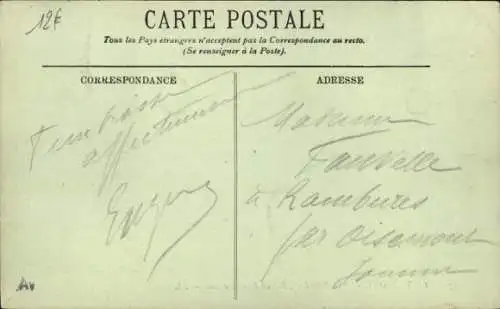 12€
CARTE POSTALE
Tous les Pays étrangers n'acceptent pas la Correspondance au recto.
(Se renseigner à la Poste).
CORRESPONDANCE
ADRESSE
T'embrasse
affectueusement
Madame
Fauvelle
à Rambures
par Oisemont
Somme